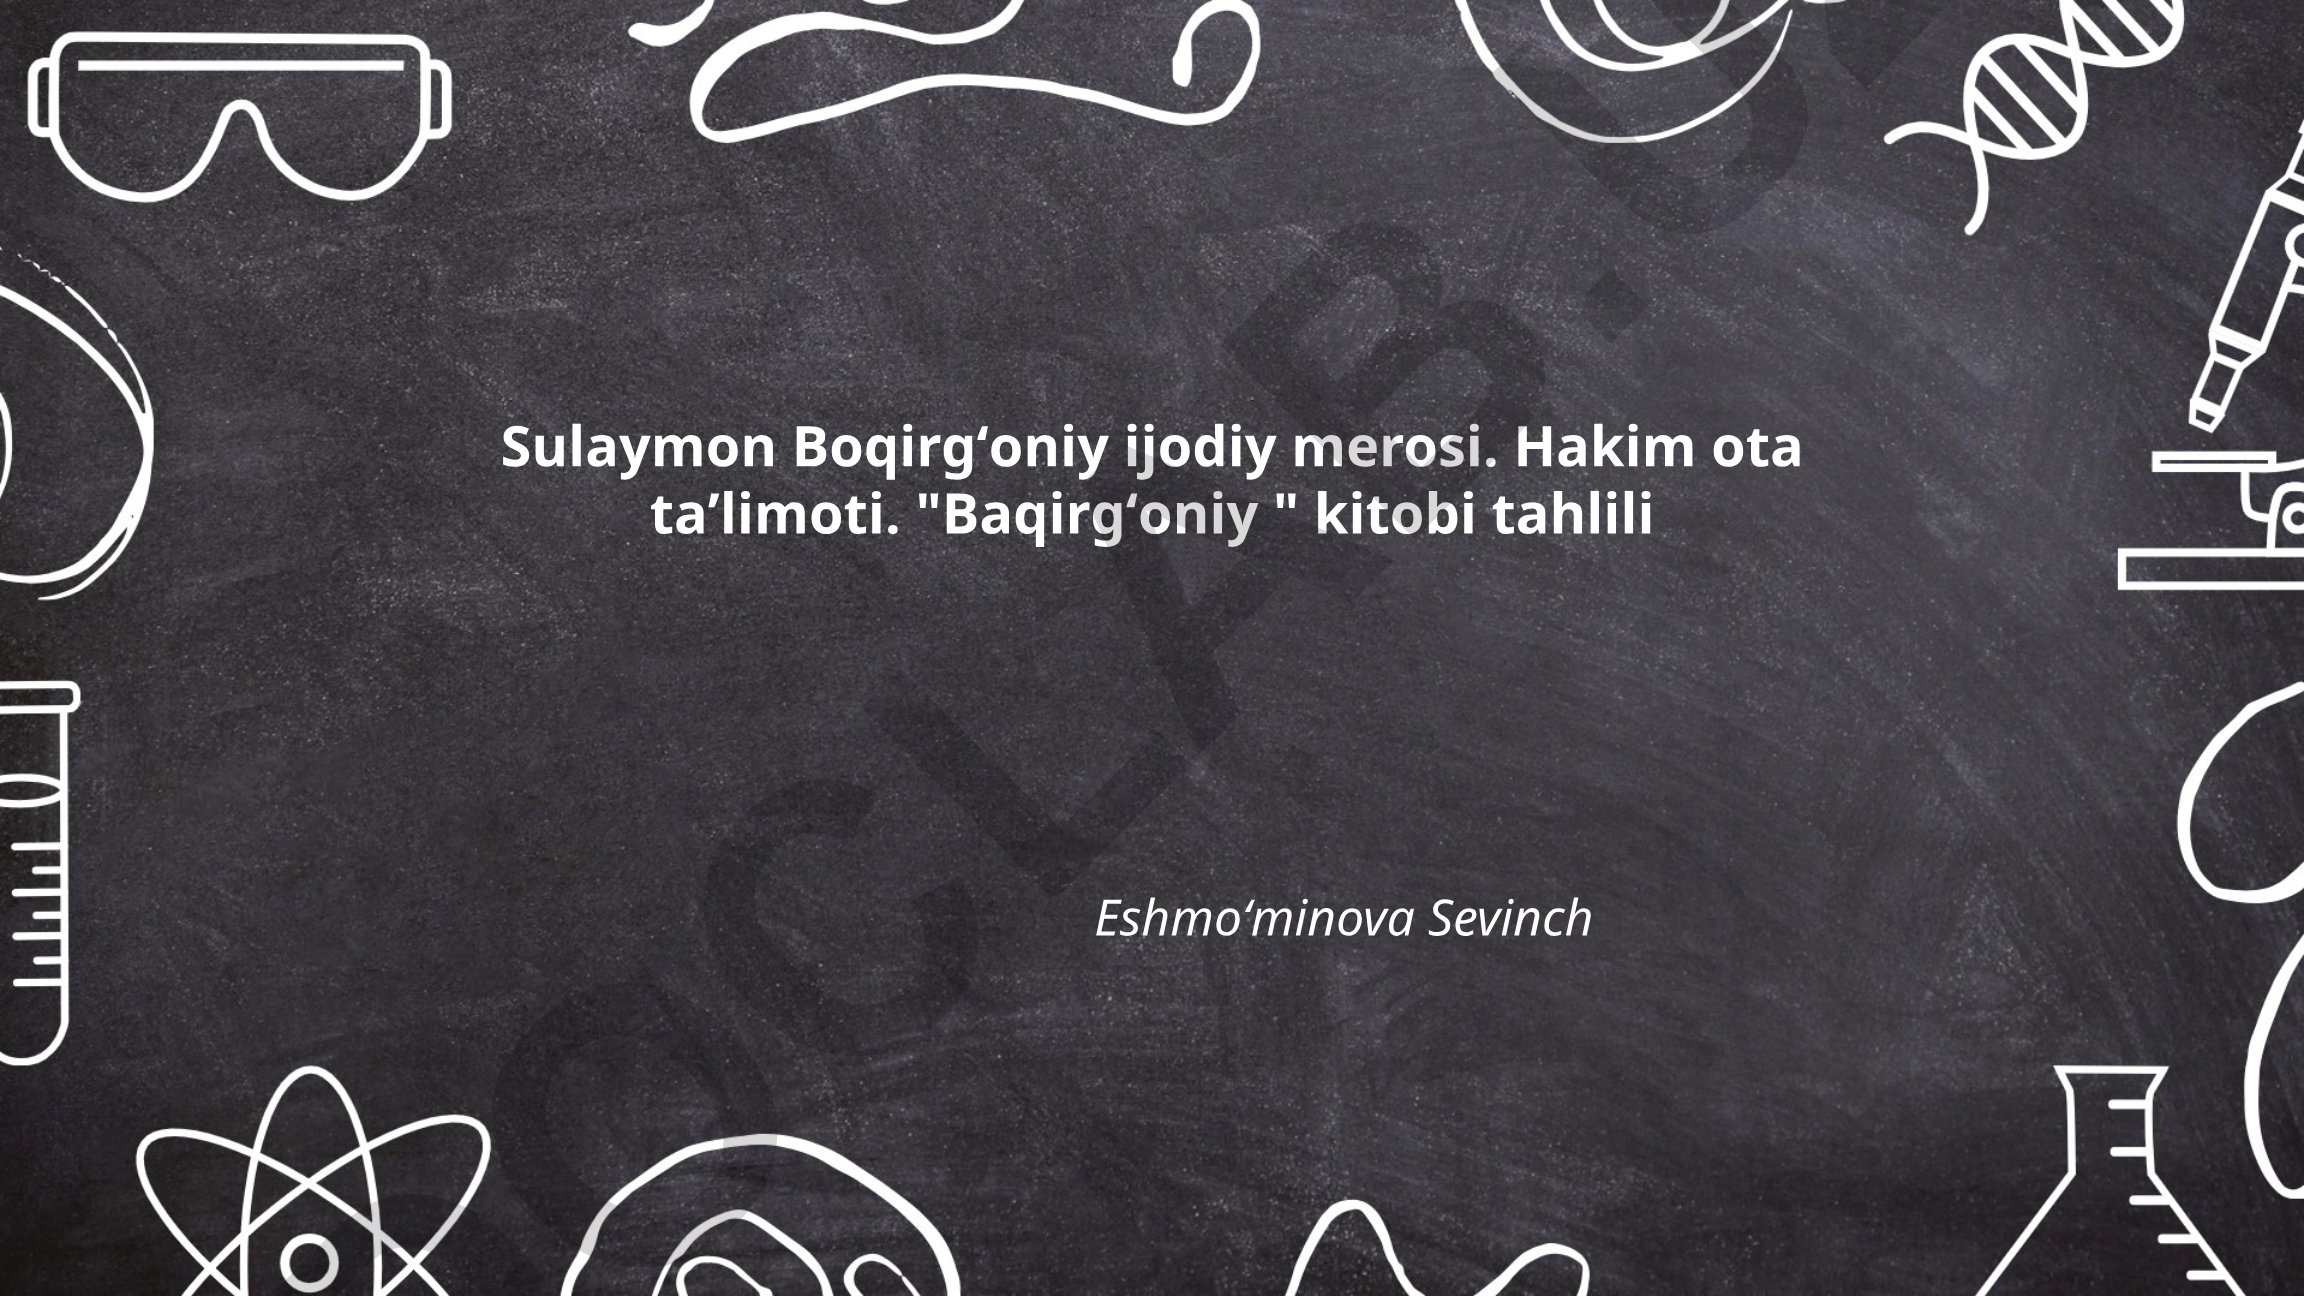 Sulaymon Boqirg‘oniy ijodiy merosi. Hakim ota
ta’limoti. "Baqirg‘oniy " kitobi tahlili
Eshmo‘minova Sevinch